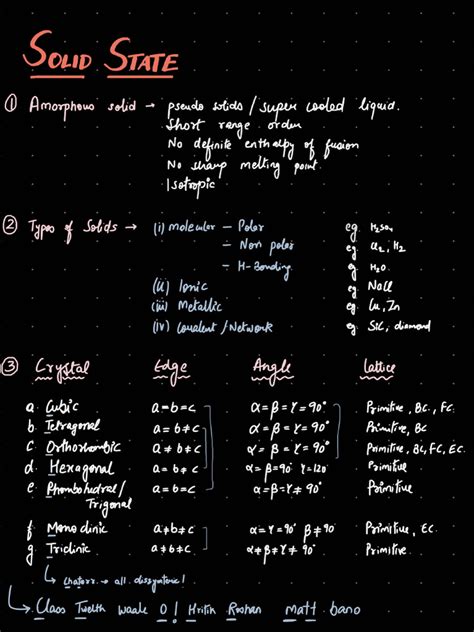 SOLID STATE
① Amorphous solid → pseudo solids / super cooled liquid.
Short range order
No definite enthalpy of fusion
No sharp melting point.
Isotropic
② Types of Solids → (i) molecular – Polar eg. H₂SO₄
– Non polar eg. Cl₂, H₂
– H-Bonding eg. H₂O
(ii) Ionic eg. NaCl
(iii) Metallic eg. Cu, Zn
(iv) Covalent / Network eg. SiC, diamond
③ Crystal Edge Angle lattice
a. Cubic a=b=c α=β=γ=90° Primitive, BC, FC.
b. Tetragonal a=b≠c α=β=γ=90° Primitive, BC
c. Orthorhombic a≠b≠c α=β=γ=90° Primitive, BC, FC, EC.
d. Hexagonal a=b≠c α=β=90° γ=120° Primitive
e. Rhombohedral / a=b=c α=β=γ≠90° Primitive
Trigonal
f. Monoclinic a≠b≠c α=γ=90° β≠90° Primitive, EC.
g. Triclinic a≠b≠c α≠β≠γ≠90° Primitive.
→ all dissymetric!
→ Class Twelth waale O! Hritik Roshan Matt bano